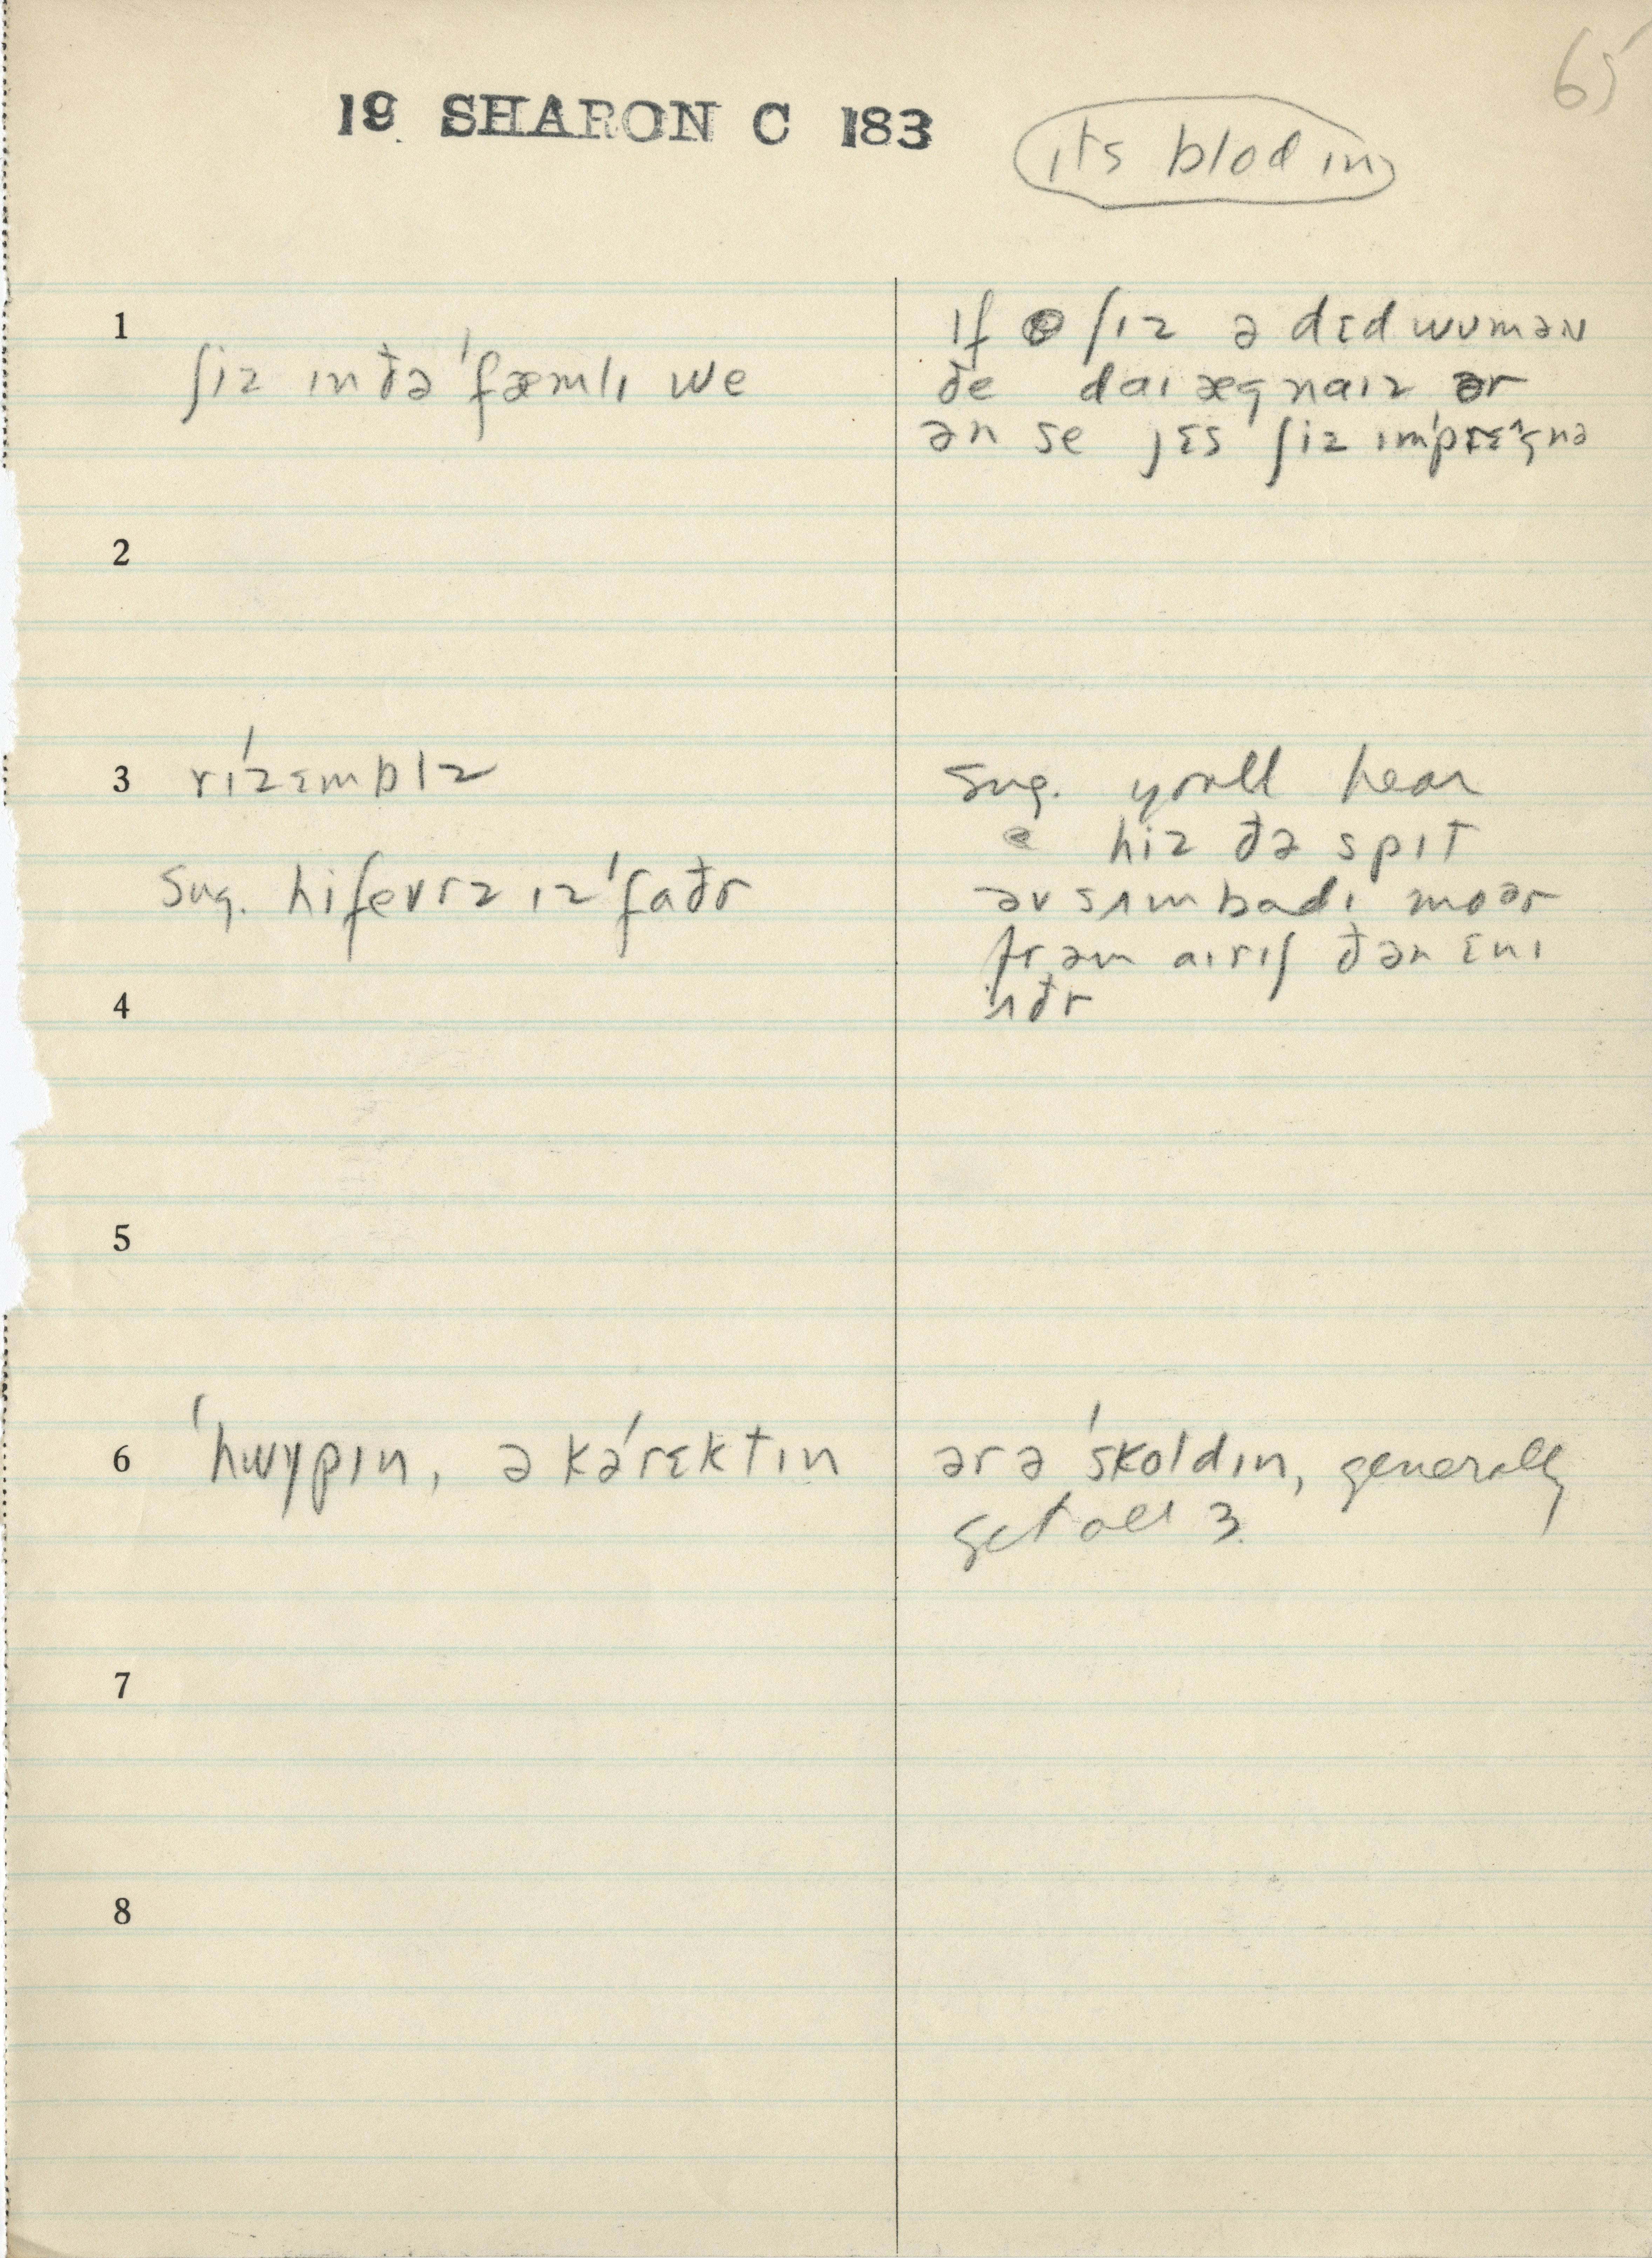 65
19 SHARON C 183
ɪts blod ɪn
1
ʃiz ɪn ðə ˈfæmlɪ we
ɪf ʃɪz ə dɛd wʊmən
ðe daɪægnaɪz ər
ən se jɛs ʃiz ɪmˈprɛgnə
2
3
rɪˈzɛmblz
Sug. hifevrz ɪz ˈfaðr
Sug. you'll hear
hiz ðə spɪt
əv sʌmbadɪ moər
frəm aɪrɪʃ ðən ɛnɪ
ʌðr
4
5
6
ˈhwɣpɪn, ə kəˈrɛktɪn
ər ə ˈskoldɪn, generally
get all 3.
7
8